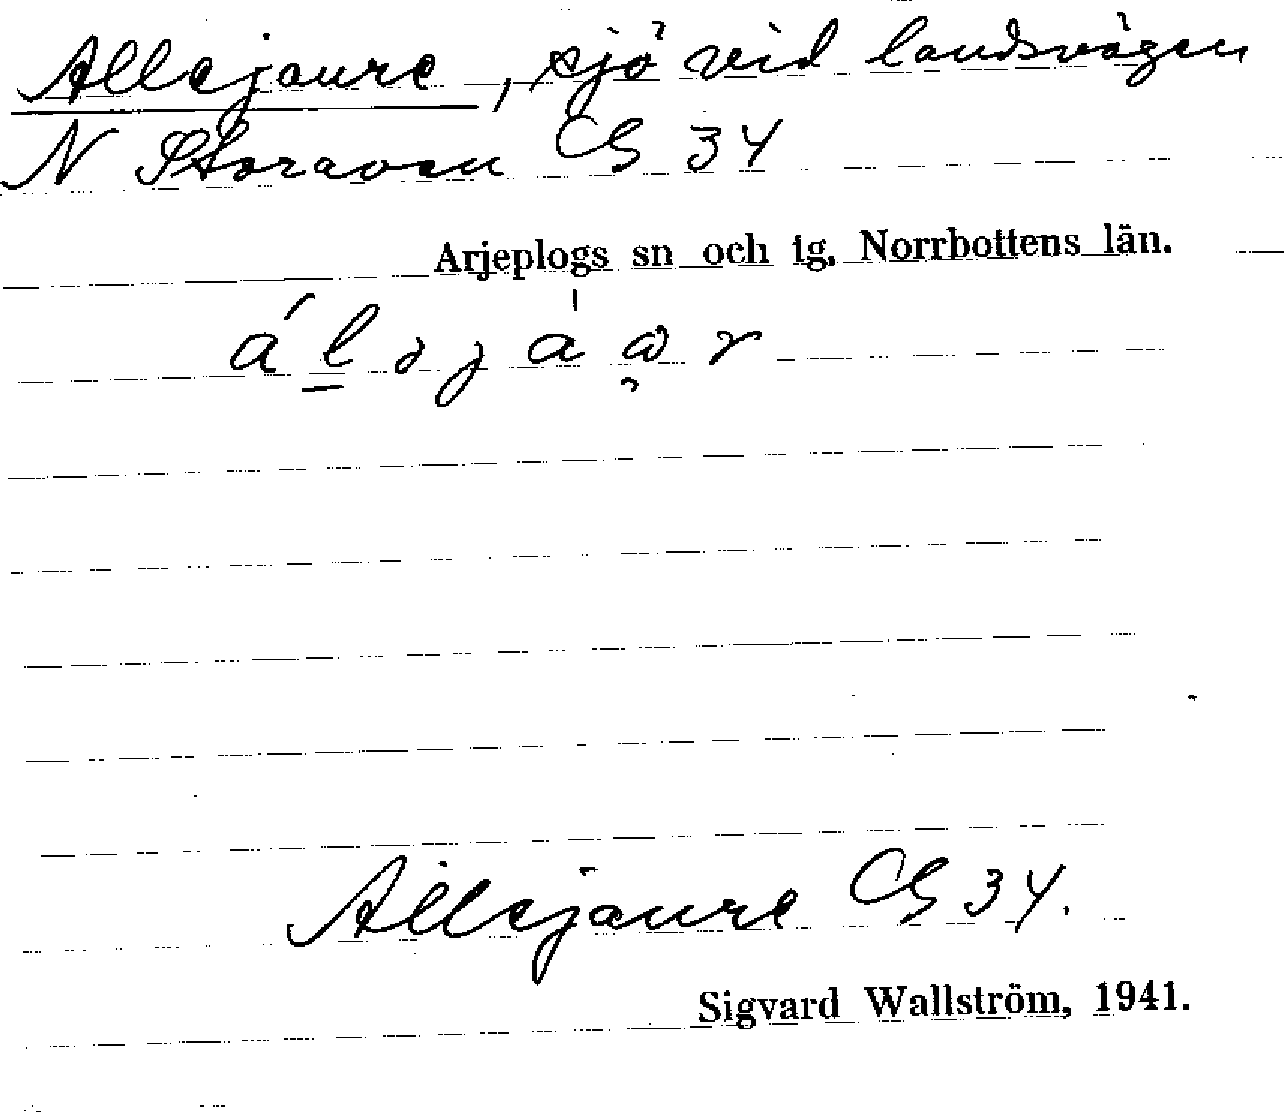 Allejaure, sjö vid landsvägen
N Storavan CG 34
Arjeplogs sn och tg, Norrbottens län.
Allejaure CG 34.
Sigvard Wallström, 1941.